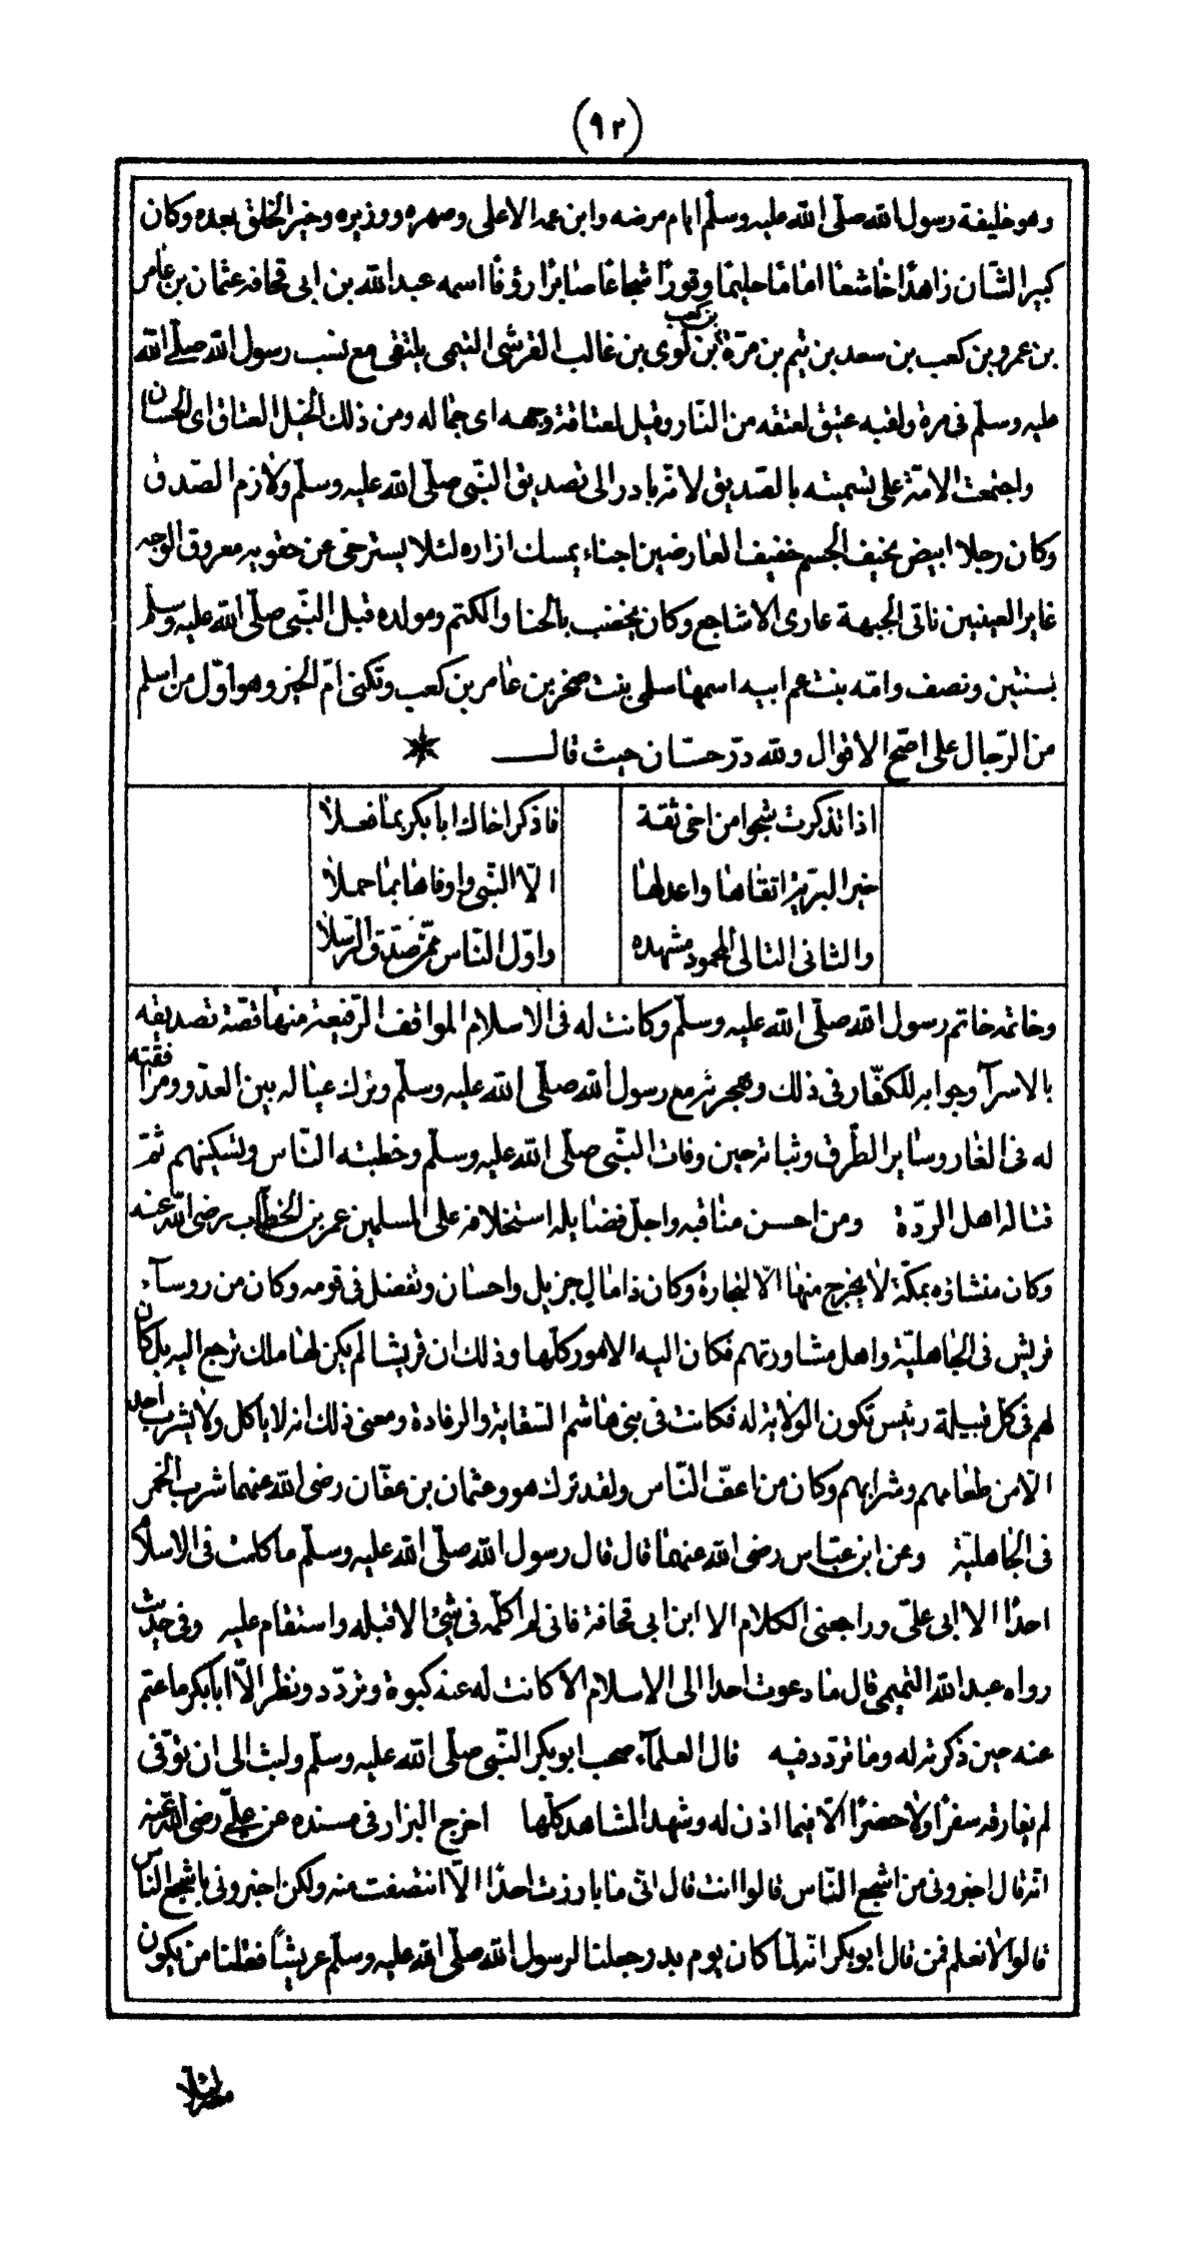 (٩٢)
وهو خليفة رسول الله صلّى الله عليه وسلّم ايام مرضه وابن عمه الاعلى وصهره ووزيره وخير الخلق بعده وكان
كبير الشّان زاهدًا خاشعًا امامًا حليمًا وقورًا شجاعًا صابرًا رؤفًا اسمه عبد الله بن ابى قحافه عثمان بن عامر
بن عمرو بن كعب بن سعد بن تيم بن مرّة بن كعب بن لوى بن غالب القرشى التيمى يلتقى مع نسب رسول الله صلّى الله
عليه وسلّم فى مرة ولقبه عتيق لعتقه من النّار وقيل لعتاقة وجهه اى جماله ومن ذلك الخيل العتاق اى الحسان
واجتمعت الامّة على تسميته بالصّديق لانّه بادر الى تصديق النّبى صلّى الله عليه وسلّم ولازم الصّدق
وكان رجلا ابيض نحيف الجسم خفيف العارضين اجناء يمسك ازاره لئلا يسترخى عن حقويه معروق الوجه
غاير العينين ناتى الجبهة عارى الاشاجع وكان يخضب بالحنا والكتم ومولده قبل النّبى صلّى الله عليه وسلّم
بسنتين ونصف وامّه بنت عم ابيه اسمها سلمى بنت صخر بن عامر بن كعب وتكنى امّ الخير وهو اوّل من اسلم
من الرّجال على اصحّ الاقوال ولله درّ حسّان حيث قال
اذا تذكرت شجوا من اخى ثقة فاذكر اخاك ابا بكر بما فعلا
خير البريّة اتقاها واعدلها الّا النّبى واوفاها بما حملا
والثانى التالى المحمود مشهده واوّل النّاس ممّن صدّق الرّسلا
وخاتمه خاتم رسول الله صلّى الله عليه وسلّم وكانت له فى الاسلام المواقف الرّفيعة منها قصّة تصديقه
بالاسرآ وجوابه للكفّار فى ذلك وهجرته مع رسول الله صلّى الله عليه وسلّم وترك عياله بين العدّو ومرافقته
له فى الغار وساير الطّرق وثباته حين وفات النّبى صلّى الله عليه وسلّم وخطبته النّاس وتسكينهم ثمّ
قتاله اهل الردّة ومن احسن مناقبه واجلّ فضايله استخلافه على المسلمين عمر بن الخطّاب رضى الله عنه
وكان منشاؤه بمكّة لا يخرج منها الّا لتجارة وكان ذا مال جزيل واحسان وتفضل فى قومه وكان من روسآء
قريش فى الجاهليّة واهل مشاورتهم فكان اليه الامور كلّها وذلك ان قريشا لم يكن لها ملك ترجع اليه بل كان
لهم فى كلّ قبيلة رئيس تكون الولاية له فكانت فى بنى هاشم السّقاية والرفادة ومعنى ذلك انه لا ياكل ولا يشرب احد
الّا من طعامهم وشرابهم وكان من اعفّ النّاس ولقد ترك هو وعثمان بن عفّان رضى الله عنهما شرب الخمر
فى الجاهليّة وعن ابن عبّاس رضى الله عنهما قال قال رسول الله صلّى الله عليه وسلّم ما كلمت فى الاسلام
احدًا الا ابى علىّ وراجعنى الكلام الا ابن ابى قحافة فانى لم اكلّمه فى شئ الا قبله واستقام عليه وفى حديث
رواه عبد الله التميمى قال ما دعوت احدا الى الاسلام الّا كانت له عنه كبوة وتردّد ونظر الّا ابا بكر ما عتم
عنه حين ذكرته له وما تردّد فيه قال العلمآء صحب ابو بكر النّبى صلّى الله عليه وسلّم ولبث الى ان توّفى
لم يفارقه سفرًا ولا حضرًا الّا فيما اذن له وشهد المشاهد كلّها اخرج البزار فى مسنده عن علىّ رضى الله عنه
انّه قال اخبرونى من اشجع النّاس قالوا انت قال انّى ما بارزت احدًا الّا انتصفت منه ولكن اخبرونى باشجع النّاس
قالوا لا نعلم فمن قال ابو بكر انه لمّا كان يوم بدر جعلنا لرسول الله صلّى الله عليه وسلّم عريشًا فقلنا من يكون